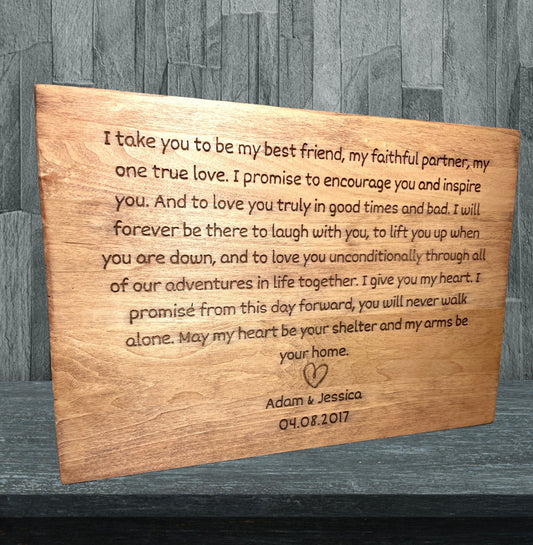 I take you to be my best friend, my faithful partner, my
one true love. I promise to encourage you and inspire
you. And to love you truly in good times and bad. I will
forever be there to laugh with you, to lift you up when
you are down, and to love you unconditionally through all
of our adventures in life together. I give you my heart. I
promise from this day forward, you will never walk
alone. May my heart be your shelter and my arms be
your home.
Adam & Jessica
04.08.2017